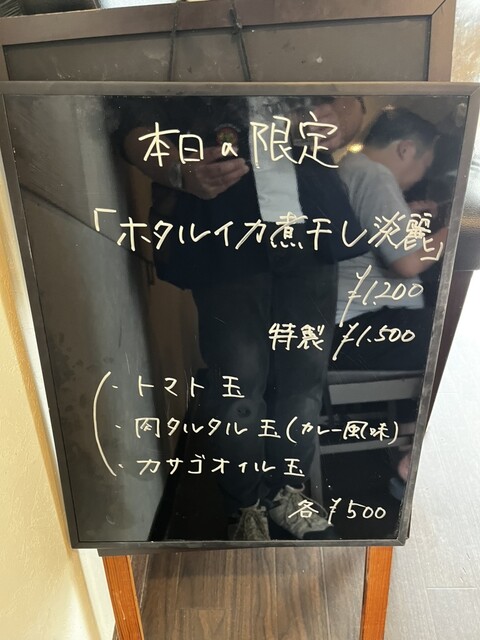 本日の限定
「ホタルイカ煮干し淡麗」
¥1.200
特製 ¥1.500
・トマト玉
・肉タルタル玉(カレー風味)
・カサゴオイル玉
各¥500